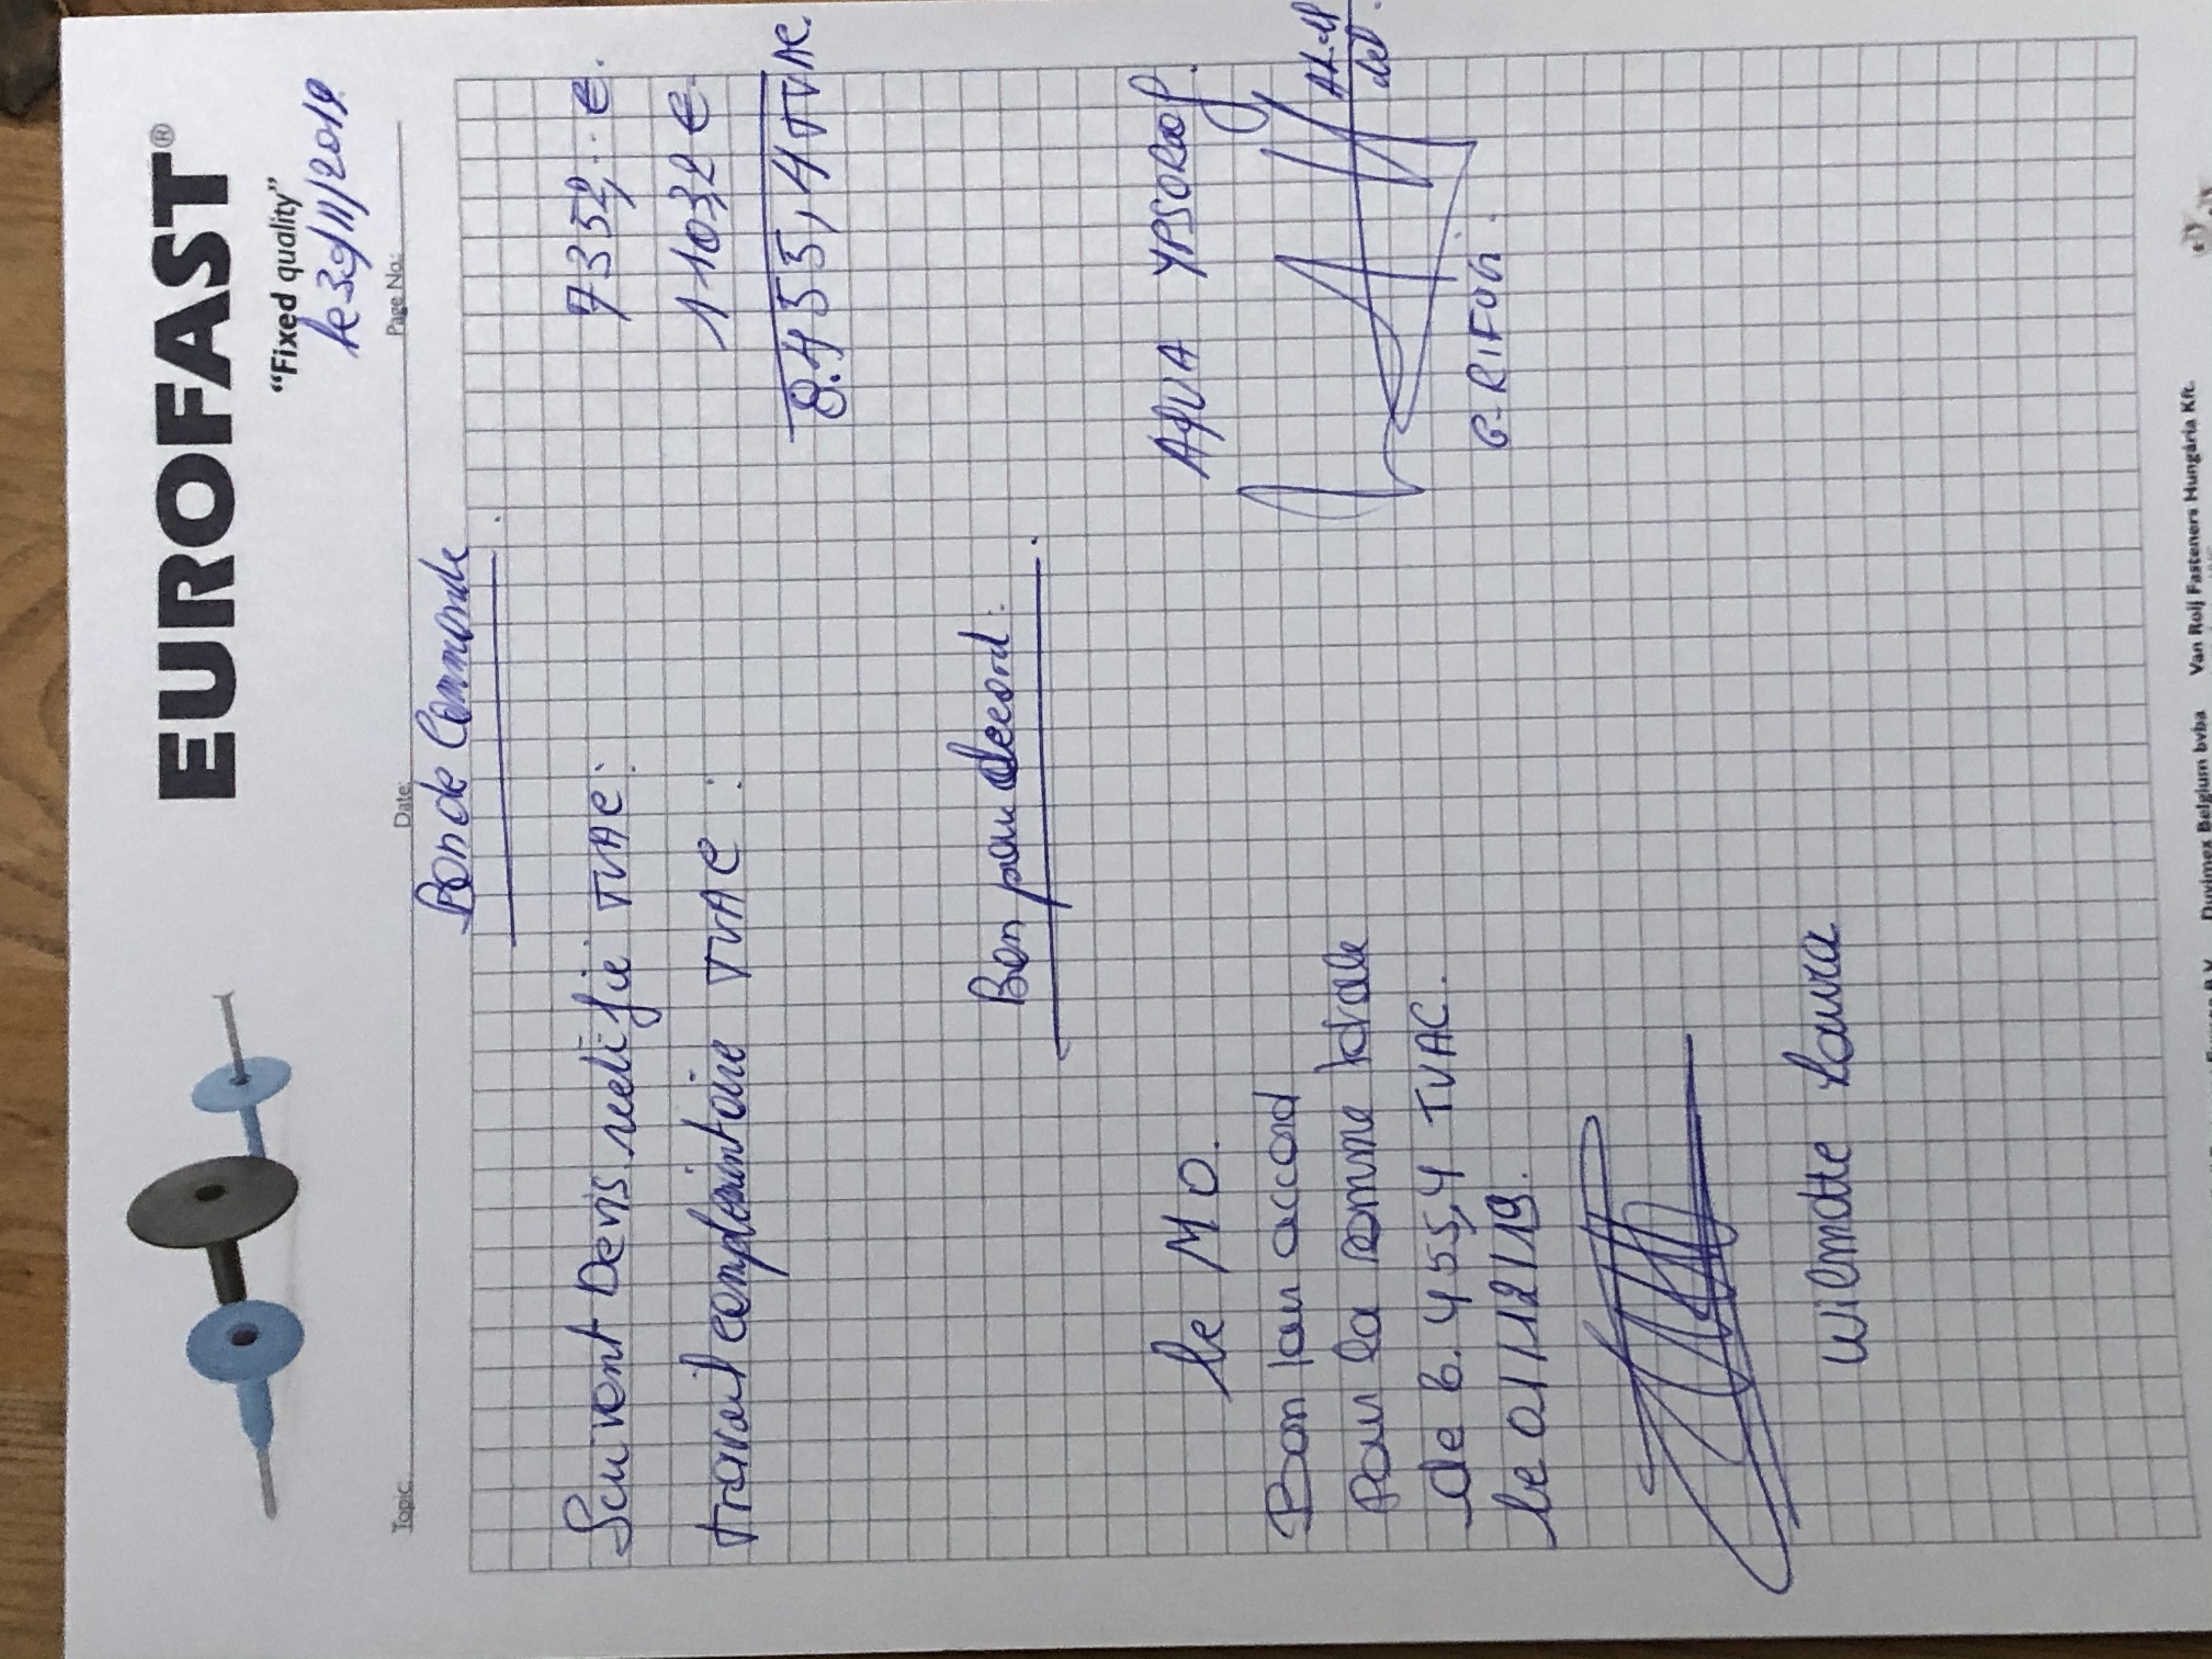 EUROFAST®
"Fixed quality"
le 30/11/2019
Topic: Date: Page No.:
Bon de Commande
Suivent Devis rectifie TVAC: 7352,.. €.
Travail complémintaire TVAC: 1103,2 €
8.455,4 TVAC.
Bon pour Accord.
le M O. AQUA YPSOROOF.
Bon pour accord
Pour la somme totale
de 8.455,4 TVAC.
le 01/12/19.
G. RIFUGI.
Wilmotte Laura
Duvimex Belgium bvba Van Roij Fasteners Hungária Kft.